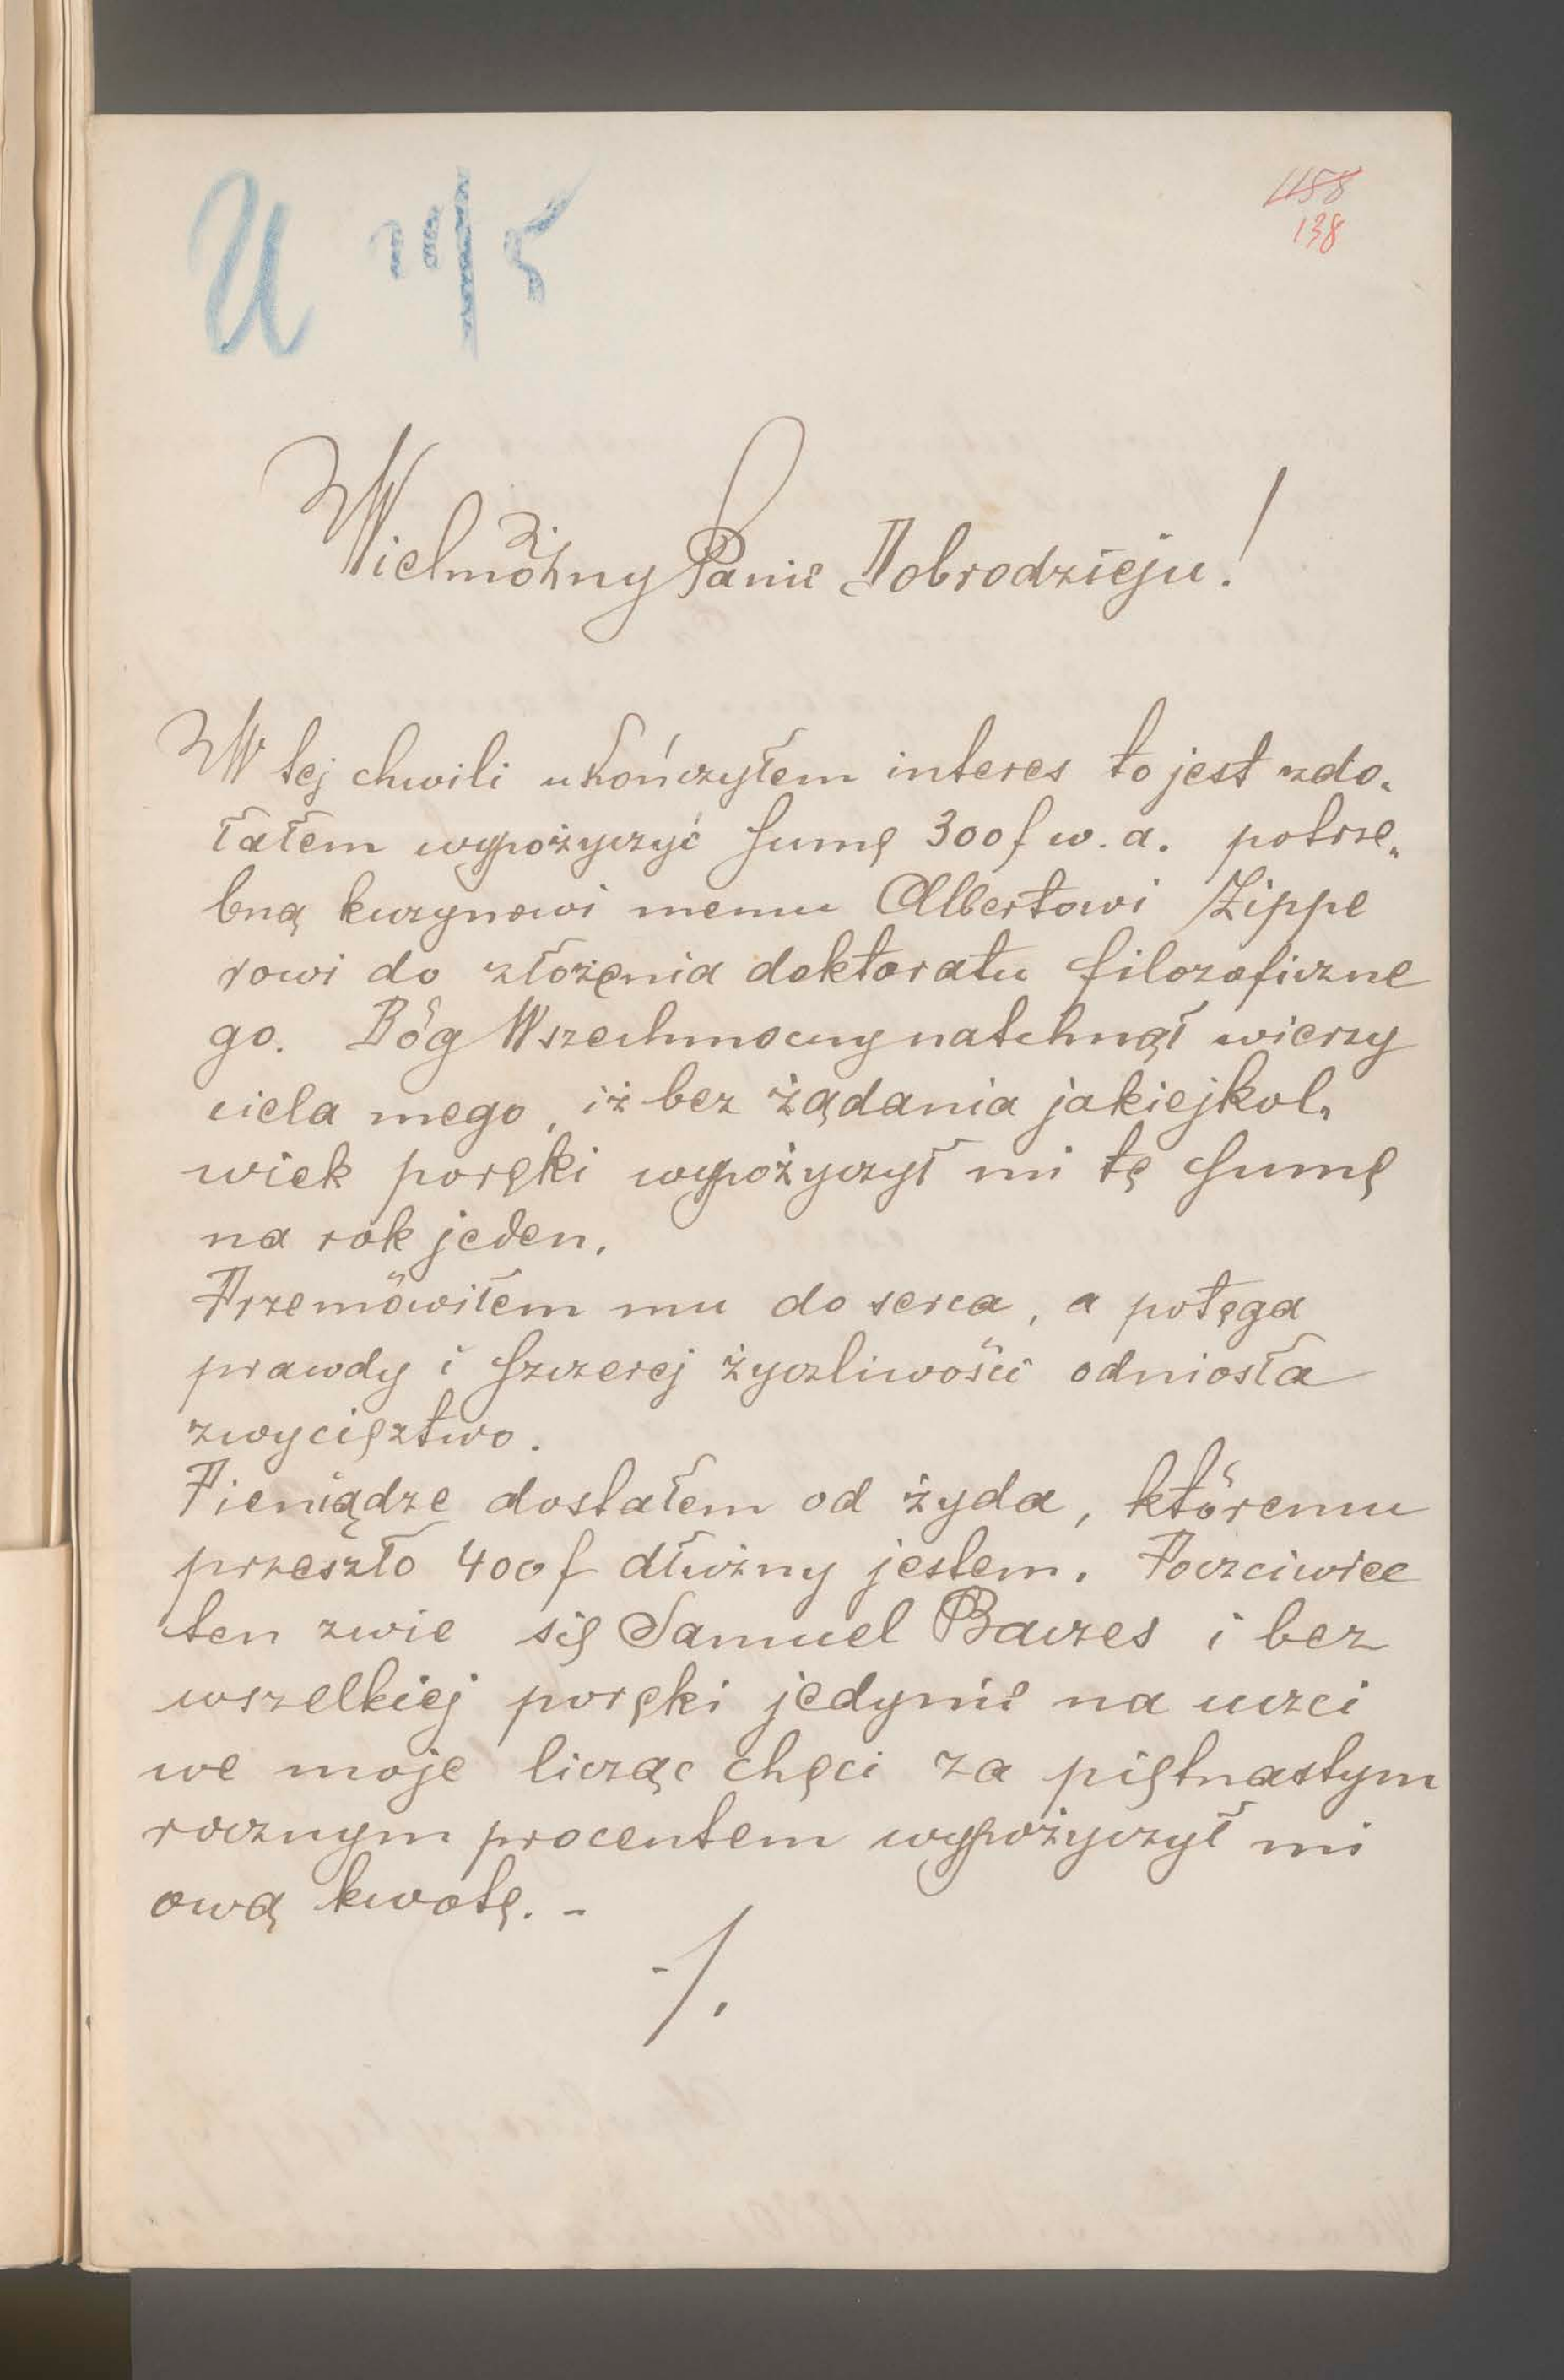 U 29/5
1158
138
Wielmożny Panie Dobrodzieju!
W tej chwili ukończyłem interes to jest zdo„
łałem wypożyczyć sumę 300f w. a. potrze„
bną kuzynowi memu Albertowi Zippe
rowi do złożenia doktoratu filozoficzne
go. Bóg Wszechmocny natchnął wierzy
ciela mego, iż bez żądania jakiejkol„
wiek poręki wypożyczył mi tę sumę
na rok jeden.
Przemówiłem mu do serca, a potęga
prawdy i szczerej życzliwości odniosła
zwycięztwo.
Pieniądze dostałem od żyda, któremu
przeszło 400f dłużny jestem. Poczciwiec
ten zwie się Samuel Baczes i bez
wszelkiej poręki jedynie na uczci
we moje licząc chęci za piętnastym
rocznym procentem wypożyczył mi
ową kwotę. -
-/.